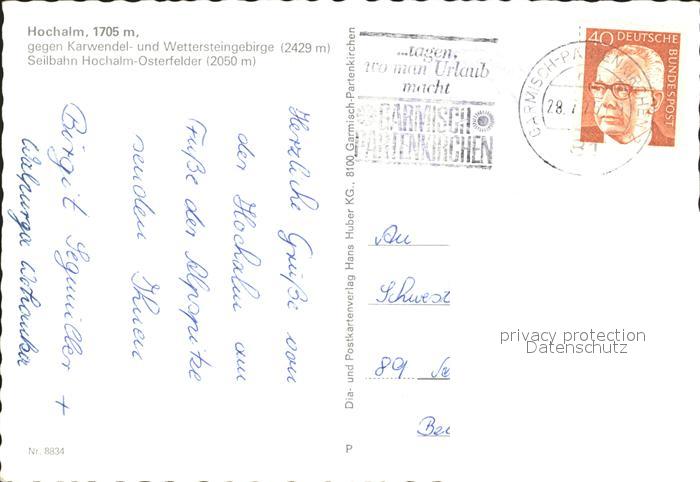 Hochalm, 1705 m,
gegen Karwendel- und Wettersteingebirge (2429 m)
Seilbahn Hochalm-Osterfelder (2050 m)
Herzliche Grüße von
der Hochalm am
Fuße der Alpspitze
senden Ihnen
Birgit Segmiller +
Walpurga
Nr. 8834
Dia- und Postkartenverlag Hans Huber KG., 8100 Garmisch-Partenkirchen
P
...tagen,
wo man Urlaub
macht
GARMISCH
PARTENKIRCHEN
GARMISCH-PARTENKIRCHEN
28.
40 DEUTSCHE
BUNDESPOST
An
Schwest
89
Ber
privacy protection
Datenschutz